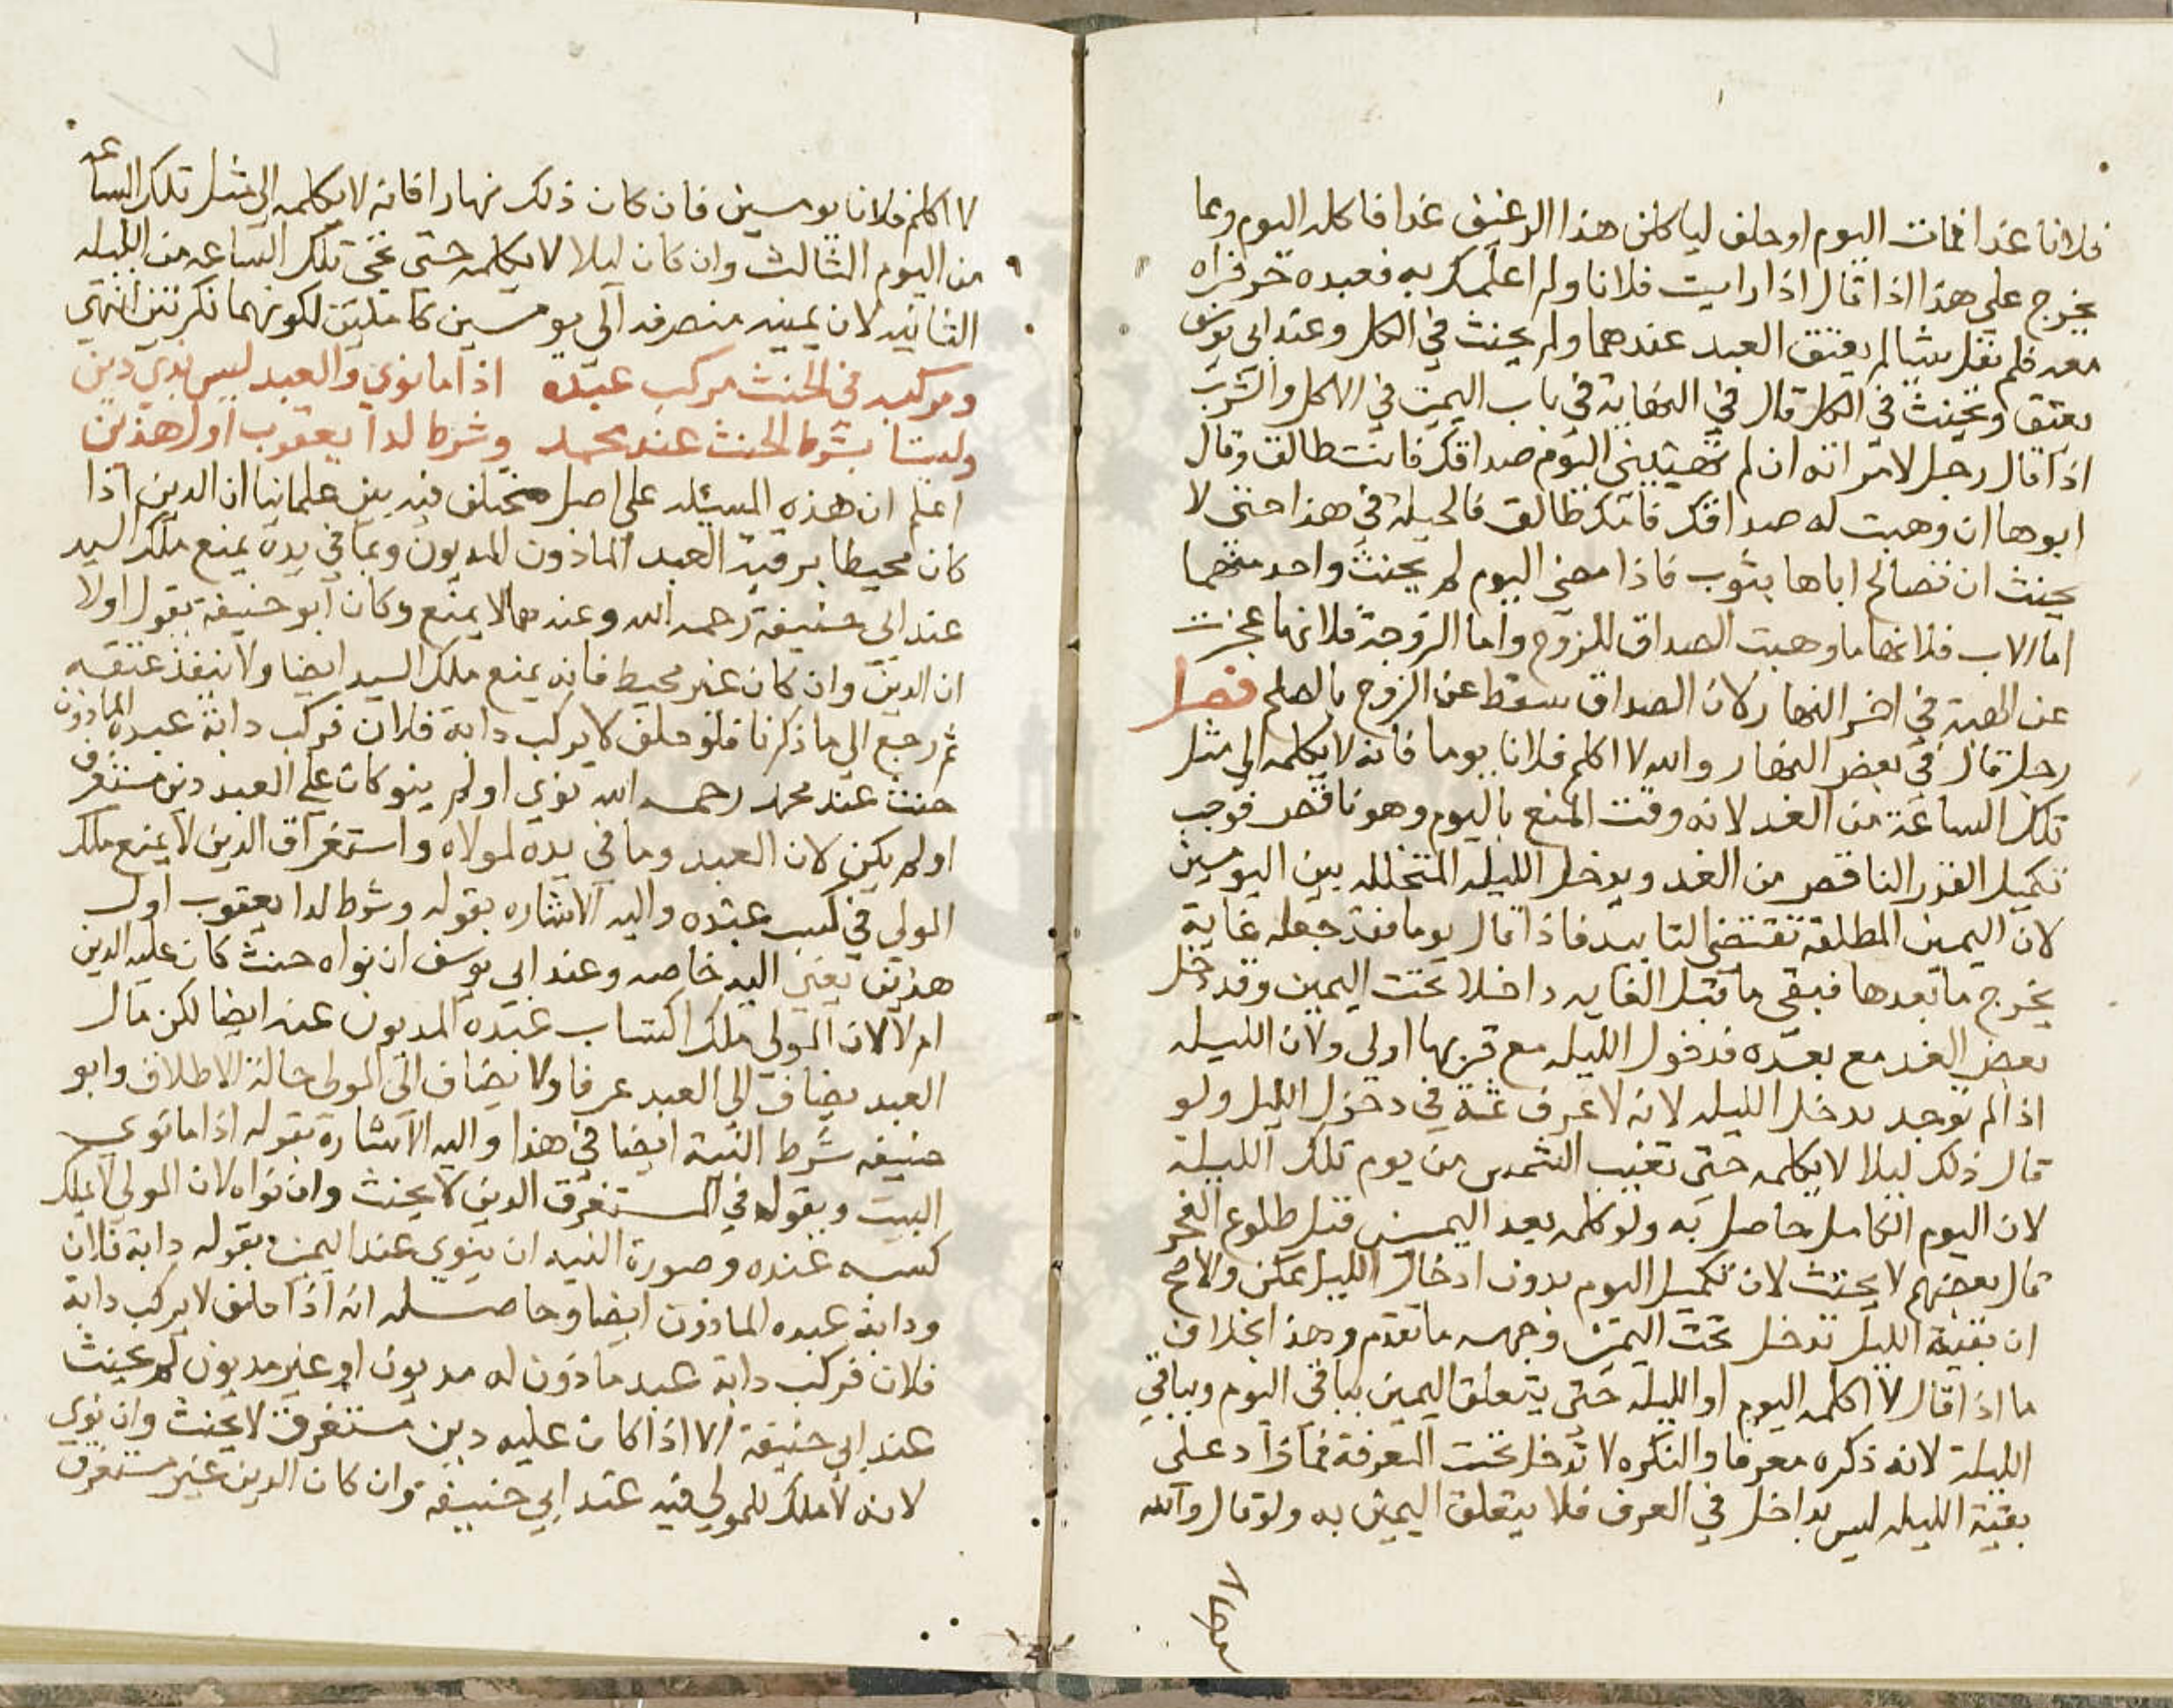 فلانا غدا فمات اليوم او حلف لياكلن هذا الرغيف غدا فاكله اليوم ومما
يخرج على هذا اذا قال اذا رايت فلانا ولم اعلمك به فعبده حر فراه
معه فلم يقل شيا لم يعتق العبد عندهما ولم يحنث في الكل وعند ابي يوسف
يعتق ويحنث في الكل قال في النهاية في باب اليمين في الاكل والشرب
اذا قال رجل لامراته ان لم تهبيني اليوم صداقك فانت طالق وقال
ابوها ان وهبت له صداقك فامك طالق فالحيلة في هذا حتى لا
يحنث ان تصالح اباها بثوب فاذا مضى اليوم لم يحنث واحد منهما
اما الاب فلانها ما وهبت الصداق للزوج واما الزوجة فلانها عجزت
عن الهبة في اخر النهار لان الصداق سقط عن الزوج بالصلح فصل
رجل قال في بعض النهار والله لا اكلم فلانا يوما فانه لا يكلمه الى مثل
تلك الساعة من الغد لانه وقت المنع باليوم وهو ناقص فوجب
تكميل القدر الناقص من الغد ويدخل الليلة المتخلله بين اليومين
لان اليمين المطلقة تقتضي التابيد فاذا قال يوما فقد جعله غاية
يخرج ما بعدها فبقى ما قبل الغايه داخلا تحت اليمين وقد دخل
بعض الغد مع بعده فدخول الليله مع قربها اولى ولان الليله
اذا لم توجد يدخل الليله لانه لا عرف ثمة في دخول الليل ولو
قال ذلك ليلا لا يكلمه حتى تغيب الشمس من يوم تلك الليلة
لان اليوم الكامل حاصل به ولو كلمه بعد اليمين قبل طلوع الفجر
قال بعضهم لا يحنث لان تكميل اليوم بدون ادخال الليل ممكن والاصح
ان بقية الليل تدخل تحت اليمين وجهه ما تقدم وهذا بخلاف
ما اذا قال لا اكلمه اليوم او الليله حتى يتعلق اليمين بباقي اليوم وبباقي
الليلة لانه ذكره معرفا والنكره لا تدخل تحت المعرفة فما زاد على
بقية الليله ليس بداخل في العرف فلا يتعلق اليمين به ولو قال والله
لا اكلم فلانا يومين فان كان ذلك نهارا فانه لا يكلمه الى مثل تلك الساعه
من اليوم الثالث وان كان ليلا لا يكلمه حتى تجي تلك الساعه من الليله
الثانيه لان يمينه منصرفه الى يومين كاملين لكونهما نكرتين انتهى
ومركبه في الحنث مركب عبده اذا ما نوى والعبد ليس بذي دين
وليستا بشرط الحنث عند محمد وشرطا لدا يعقوب اول هذين
اعلم ان هذه المسئله على اصل مختلف فيه بين علمائنا ان الدين اذا
كان محيطا برقبة العبد الماذون المديون وبما في يده يمنع ملك السيد
عند ابي حنيفة رحمه الله وعندهما لا يمنع وكان ابو حنيفة يقول اولا
ان الدين وان كان غير محيط فانه يمنع ملك السيد ايضا ولا ينفذ عتقه
ثم رجع الى ما ذكرنا فلو حلف لا يركب دابة فلان فركب دابة عبده الماذون
حنث عند محمد رحمه الله نوى او لم ينو كان على العبد دين مستغرق
او لم يكن لان العبد وما في يده لمولاه واستغراق الدين لا يمنع ملك
المولى في كسب عبده واليه الاشاره بقوله وشرطا لدا يعقوب اول
هذين يعني النيه خاصه وعند ابي يوسف ان نواه حنث كان عليه الدين
ام لا لان المولى ملك اكتساب عبده المديون عنه ايضا لكن مال
العبد يضاف الى العبد عرفا ولا يضاف الى المولى حالة الاطلاق وابو
حنيفه شرط النية ايضا في هذا واليه الاشارة بقوله اذا ما نوى
البيت وبقوله في المستغرق الدين لا يحنث وان نواه لان المولى لا يملك
كسبه عنده وصورة النيه ان ينوي عند اليمين بقوله دابة فلان
ودابة عبده الماذون ايضا وحاصله انه اذا حلف لا يركب دابة
فلان فركب دابة عبد ماذون له مديون او غير مديون لم يحنث
عند ابي حنيفة الا اذا كان عليه دين مستغرق لا يحنث وان نوى
لانه لا ملك للمولى فيه عند ابي حنيفة وان كان الدين غير مستغرق